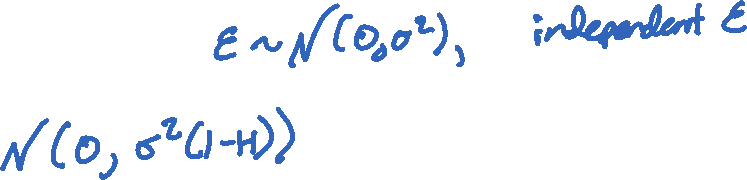 ε ~ N(0, σ²), independent ε
N(0, σ²(1-H))